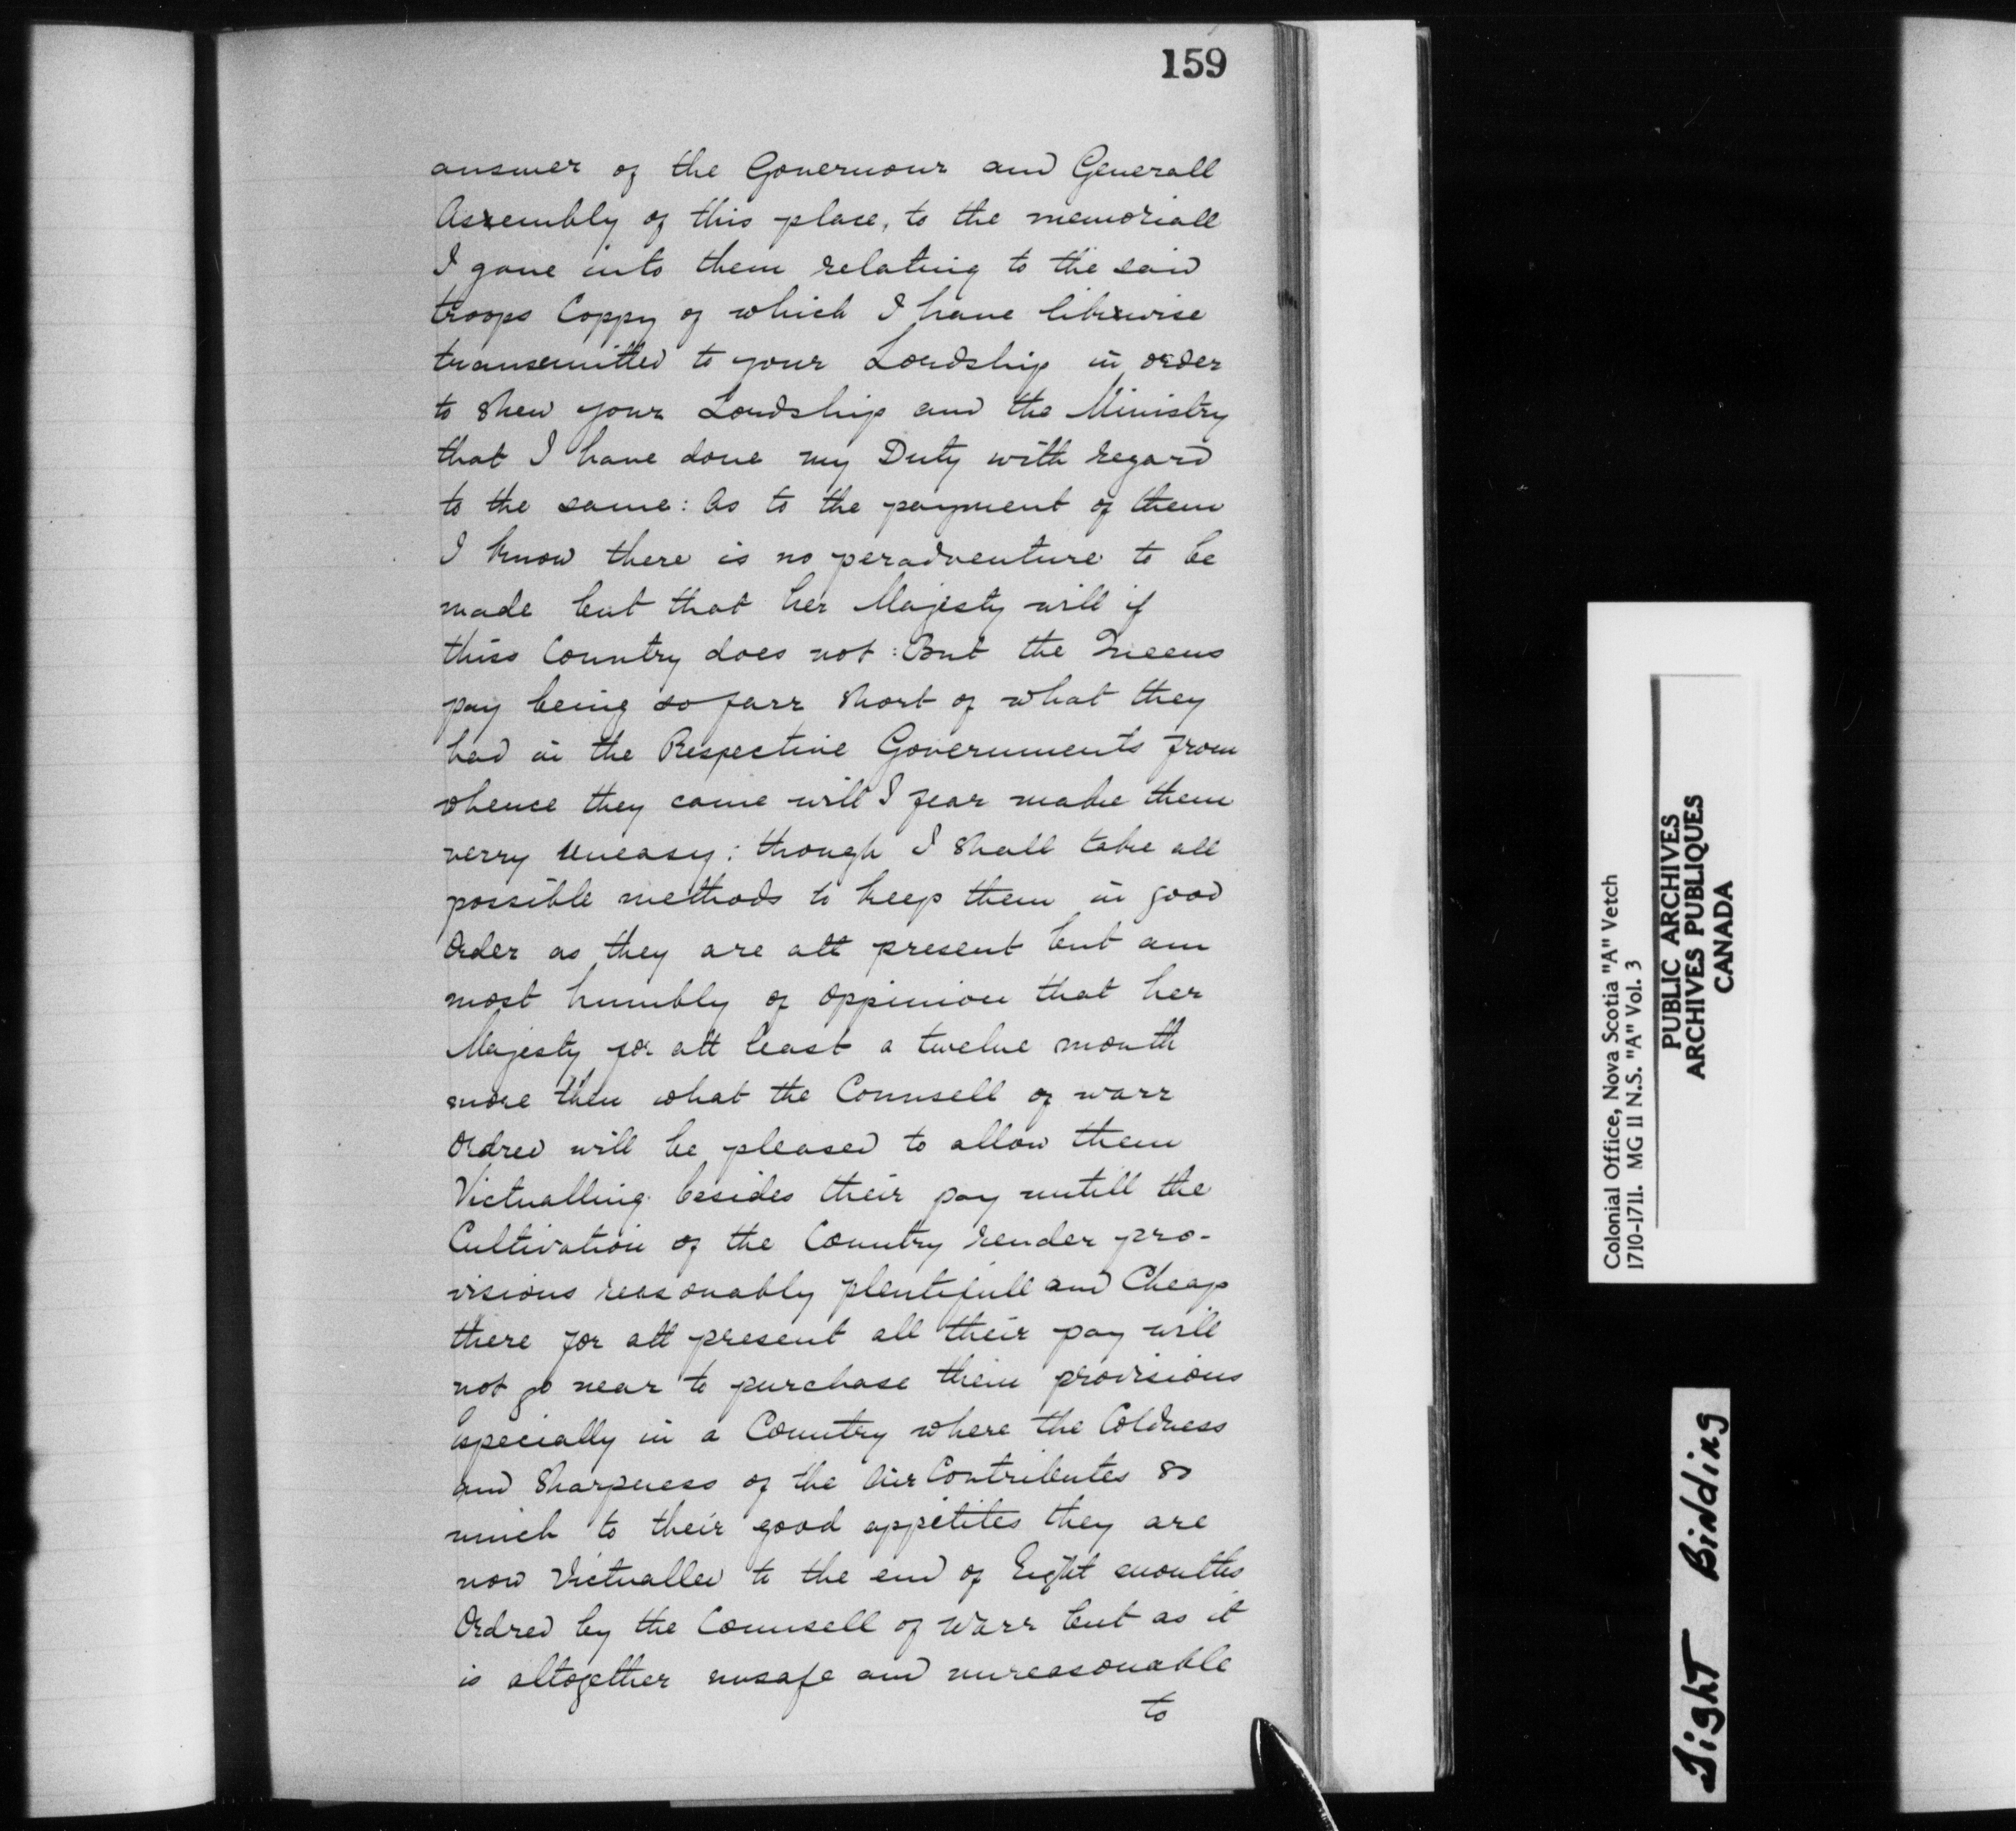 159
answer of the Governour and Generall
Assembly of this place, to the memoriall
I gave into them relating to the said
troops Coppy of which I have likewise
transmitted to your Lordship in order
to shew your Lordship and the Ministry
that I have done my Duty with regard
to the same: As to the payment of them
I know there is no peradventure to be
made but that her Majesty will if
thiss Country does not: But the Queens
pay being so farr short of what they
had in the Respective Governments from
whence they came will I fear make them
verry uneasy: though I shall take all
possible methods to keep them in good
Order as they are att present but am
most humbly of oppinion that her
Majesty for att least a twelve month
more then what the Counsell of warr
Ordred will be pleased to allow them
Victualling besides their pay untill the
Cultivation of the Country render pro-
visions reasonably plentifull and Cheap
there for att present all their pay will
not go near to purchase them provisions
especially in a Country where the Coldness
and Sharpness of the Air Contributes so
much to their good appetites they are
now Victualled to the end of Eight months
Ordred by the Counsell of Warr but as it
is altogether unsafe and unreasonable
to
Colonial Office, Nova Scotia "A" Vetch
1710-1711. MG 11 N.S. "A" Vol. 3
PUBLIC ARCHIVES
ARCHIVES PUBLIQUES
CANADA
Tight Binding